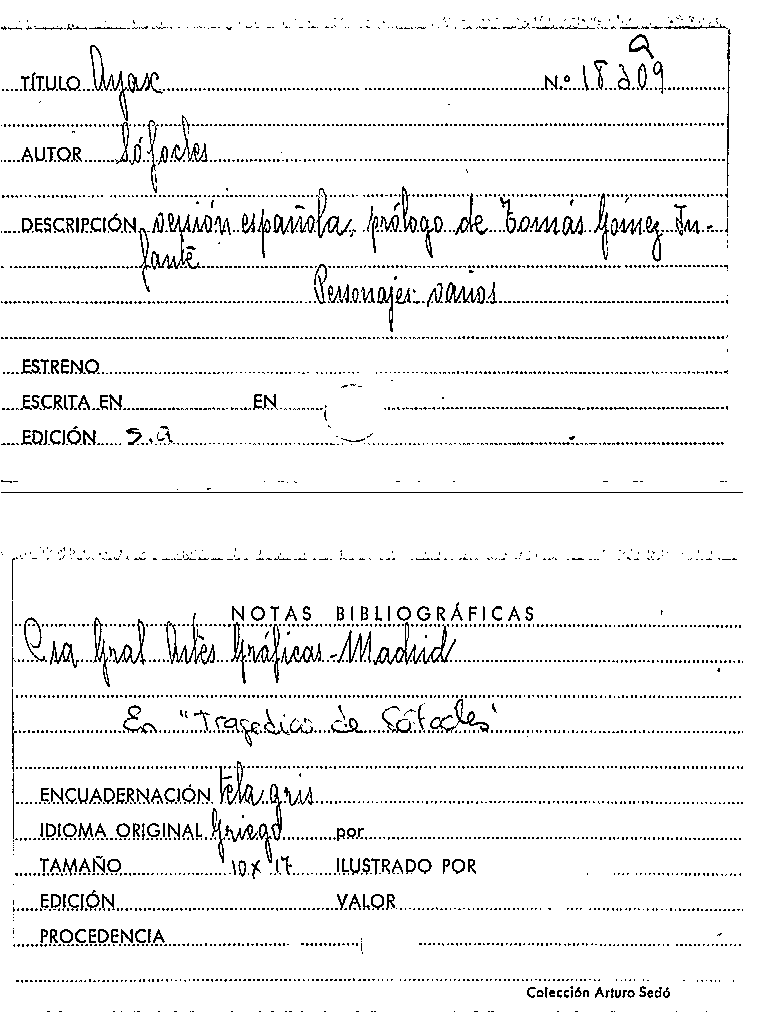 a
TÍTULO Ayax N.º 18209
AUTOR Sófocles
DESCRIPCIÓN versión española, prólogo de Tomás Gómez In-
fante
Personajes: varios
ESTRENO
ESCRITA EN EN
EDICIÓN s.a
NOTAS BIBLIOGRÁFICAS
Cía Gral Artes Gráficas - Madrid
En "Tragedias de Sófocles"
ENCUADERNACIÓN tela gris
IDIOMA ORIGINAL Griego por
TAMAÑO 10 x 17 ILUSTRADO POR
EDICIÓN VALOR
PROCEDENCIA
Colección Arturo Sedó